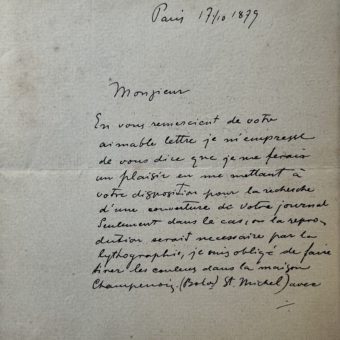 Paris 17/10 1879
Monsieur
En vous remerciant de votre
aimable lettre je m'empresse
de vous dire que je me ferais
un plaisir en me mettant à
votre disposition pour la recherche
d'une couverture de votre journal
Seulement dans le cas, où la repro-
duction serait necessaire par la
lythographie, je suis obligé de faire
tirer les couleurs dans la maison
Champenois. (Boulv) St. Michel) avec